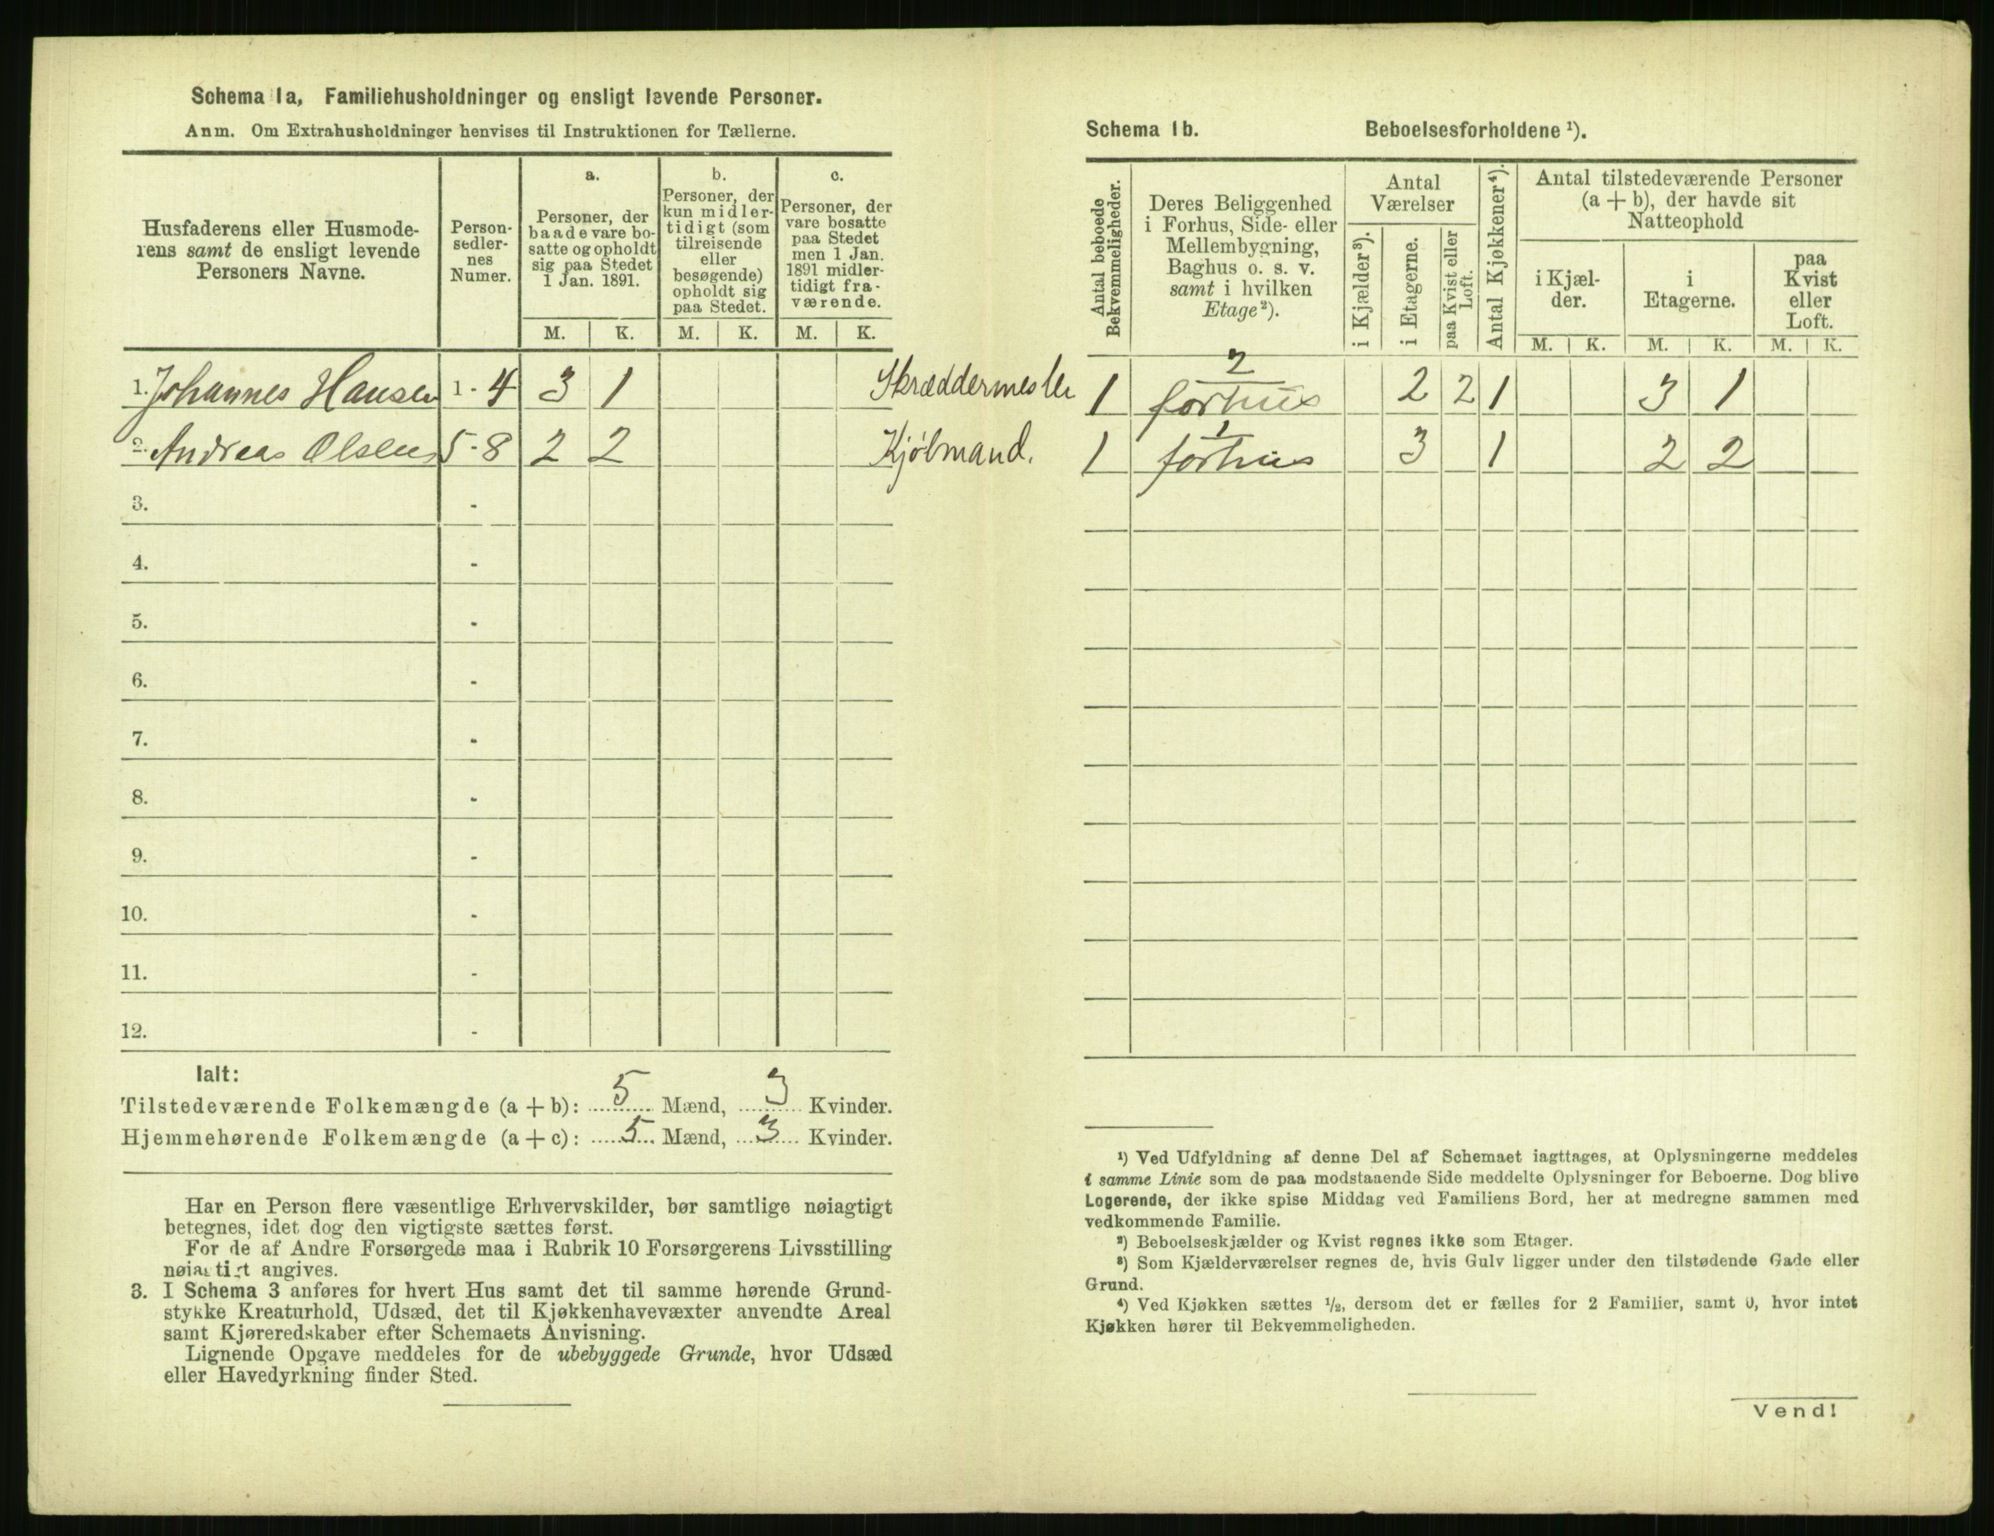 Schema 1a, Familiehusholdninger og ensligt levende Personer.
Anm. Om Extrahusholdninger henvises til Instruktionen for Tællerne.
Husfaderens eller Husmode-
rens samt de ensligt levende
Personers Navne.
Person-
sedler-
nes
Numer.
a.
Personer, der
baade vare bo-
satte og opholdt
sig paa Stedet
1 Jan. 1891.
b.
Personer, der
kun midler-
tidigt (som
tilreisende
eller
besøgende)
opholdt sig
paa Stedet.
c.
Personer, der
vare bosatte
paa Stedet
men 1 Jan.
1891 midler-
tidigt fra-
værende.
M. K. M. K. M. K.
1. Johannes Hansen 1 - 4 3 1 Skræddermester
2. Andreas Olsen 5 - 8 2 2 Kjøbmand.
3. -
4. -
5. -
6. -
7. -
8. -
9. -
10. -
11. -
12. -
Ialt:
Tilstedeværende Folkemængde (a + b): 5 Mænd, 3 Kvinder.
Hjemmehørende Folkemængde (a + c): 5 Mænd, 3 Kvinder.
Har en Person flere væsentlige Erhvervskilder, bør samtlige nøiagtigt
betegnes, idet dog den vigtigste sættes først.
For de af Andre Forsørgede maa i Rubrik 10 Forsørgerens Livsstilling
nøiagtigt angives.
3. I Schema 3 anføres for hvert Hus samt det til samme hørende Grund-
stykke Kreaturhold, Udsæd, det til Kjøkkenhavevæxter anvendte Areal
samt Kjøreredskaber efter Schemaets Anvisning.
Lignende Opgave meddeles for de ubebyggede Grunde, hvor Udsæd
eller Havedyrkning finder Sted.
Schema 1b. Beboelsesforholdene ¹).
Antal beboede
Bekvemmeligheder.
Deres Beliggenhed
i Forhus, Side- eller
Mellembygning,
Baghus o. s. v.
samt i hvilken
Etage²).
Antal
Værelser
i Kjælder³).
i Etagerne.
paa Kvist eller
Loft.
Antal Kjøkkener⁴).
Antal tilstedeværende Personer
(a + b), der havde sit
Natteophold
i Kjæl-
der.
i
Etagerne.
paa
Kvist
eller
Loft.
M. K. M. K. M. K.
2
1 forhus 2 2 1 3 1
1
1 forhus 3 1 2 2
¹) Ved Udfyldning af denne Del af Schemaet iagttages, at Oplysningerne meddeles
i samme Linie som de paa modstaaende Side meddelte Oplysninger for Beboerne. Dog blive
Logerende, der ikke spise Middag ved Familiens Bord, her at medregne sammen med
vedkommende Familie.
²) Beboelseskjælder og Kvist regnes ikke som Etager.
³) Som Kjælderværelser regnes de, hvis Gulv ligger under den tilstødende Gade eller
Grund.
⁴) Ved Kjøkken sættes ¹/₂, dersom det er fælles for 2 Familier, samt 0, hvor intet
Kjøkken hører til Bekvemmeligheden.
Vend!